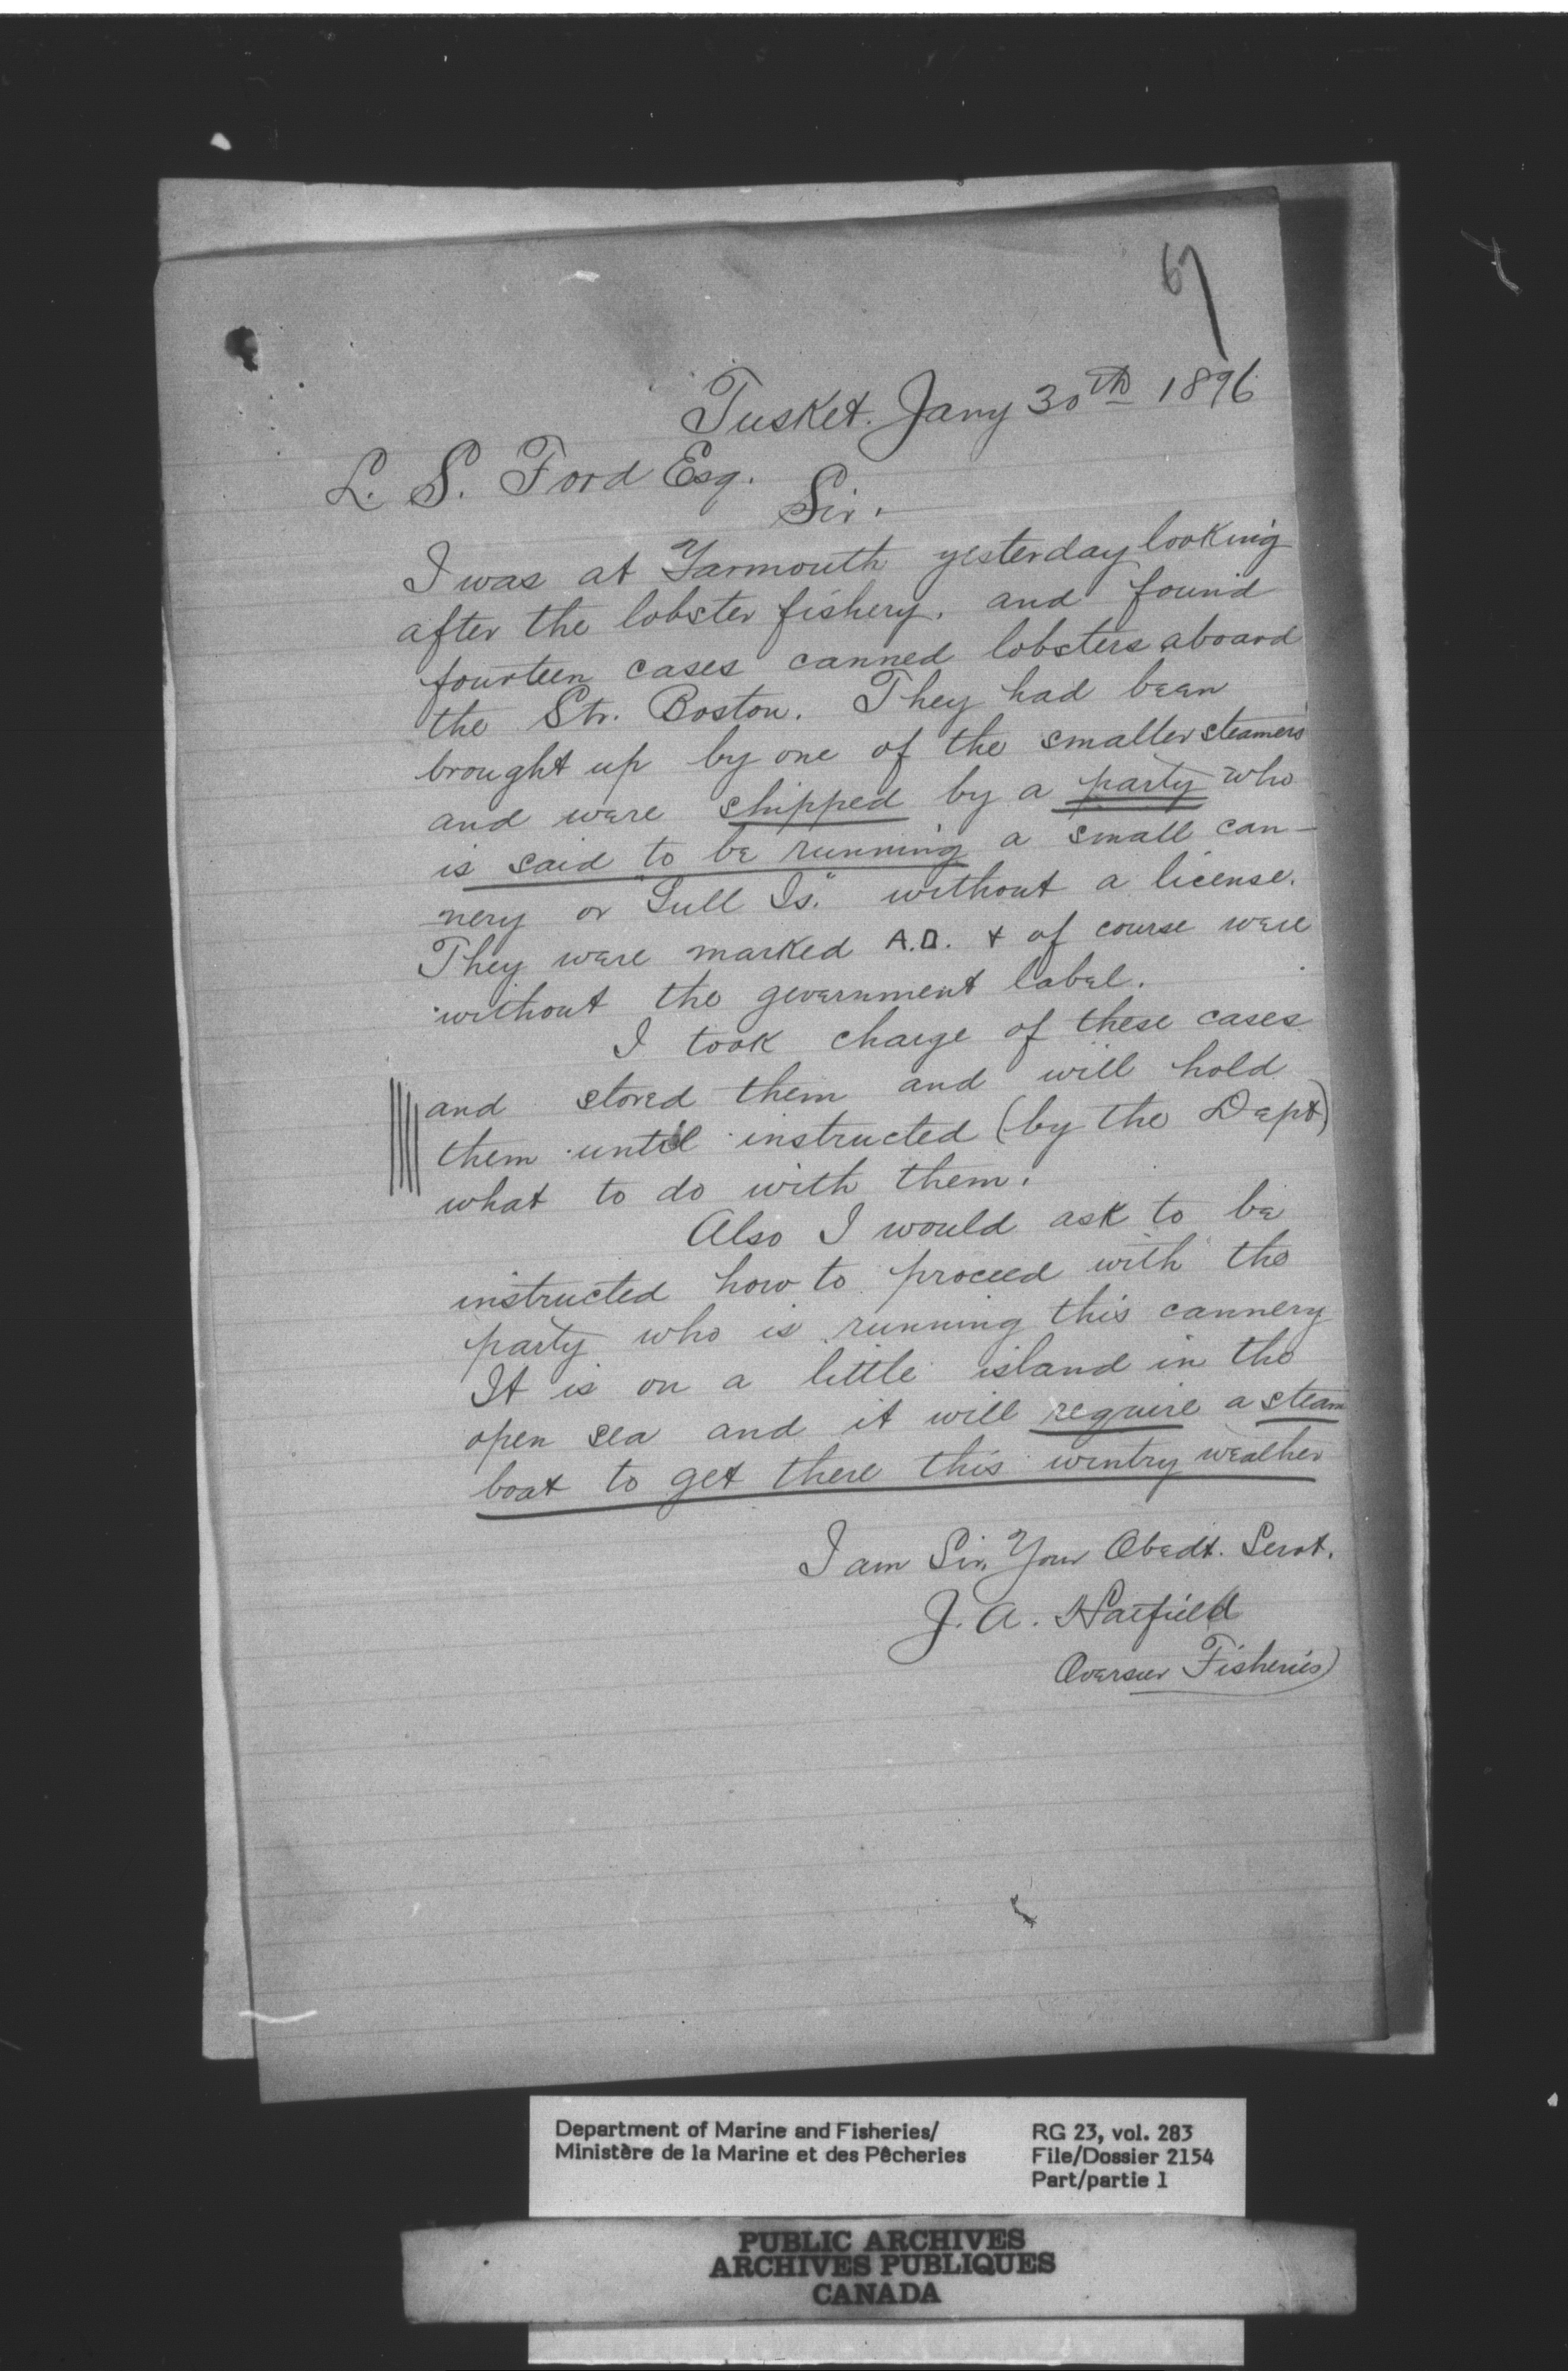 67
Tusket. Jany 30th 1896
L. S. Ford Esq.
Sir.
I was at Yarmouth yesterday looking
after the lobster fishery. and found
fourteen cases canned lobsters aboard
the Str. Boston. They had been
brought up by one of the smaller steamers
and were shipped by a party who
is said to be running a small can-
nery or "Gull Is." without a license.
They were marked A.D. & of course were
without the government label.
I took charge of these cases
and stored them and will hold
them until instructed (by the Dept)
what to do with them.
Also I would ask to be
instructed how to proceed with the
party who is running this cannery
It is on a little island in the
open sea and it will require a steam
boat to get there this wintry weather
I am Sir, Your Obedt. Servt.
J. A. Hatfield
Overseer Fisheries
Department of Marine and Fisheries/
Ministère de la Marine et des Pêcheries
RG 23, vol. 283
File/Dossier 2154
Part/partie 1
PUBLIC ARCHIVES
ARCHIVES PUBLIQUES
CANADA